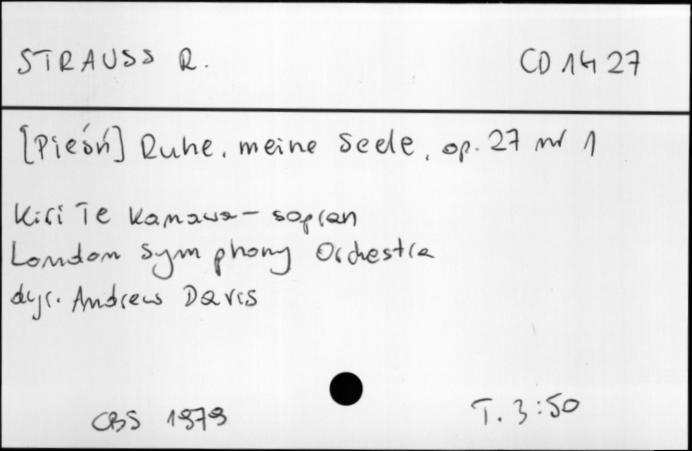 STRAUSS R. CD 1427
[Pieśń] Ruhe, meine Seele, op. 27 nr 1
Kiri Te Kanawa - sopran
London Symphony Orchestra
dyr. Andrew Davis
CBS 1979 T. 3:50